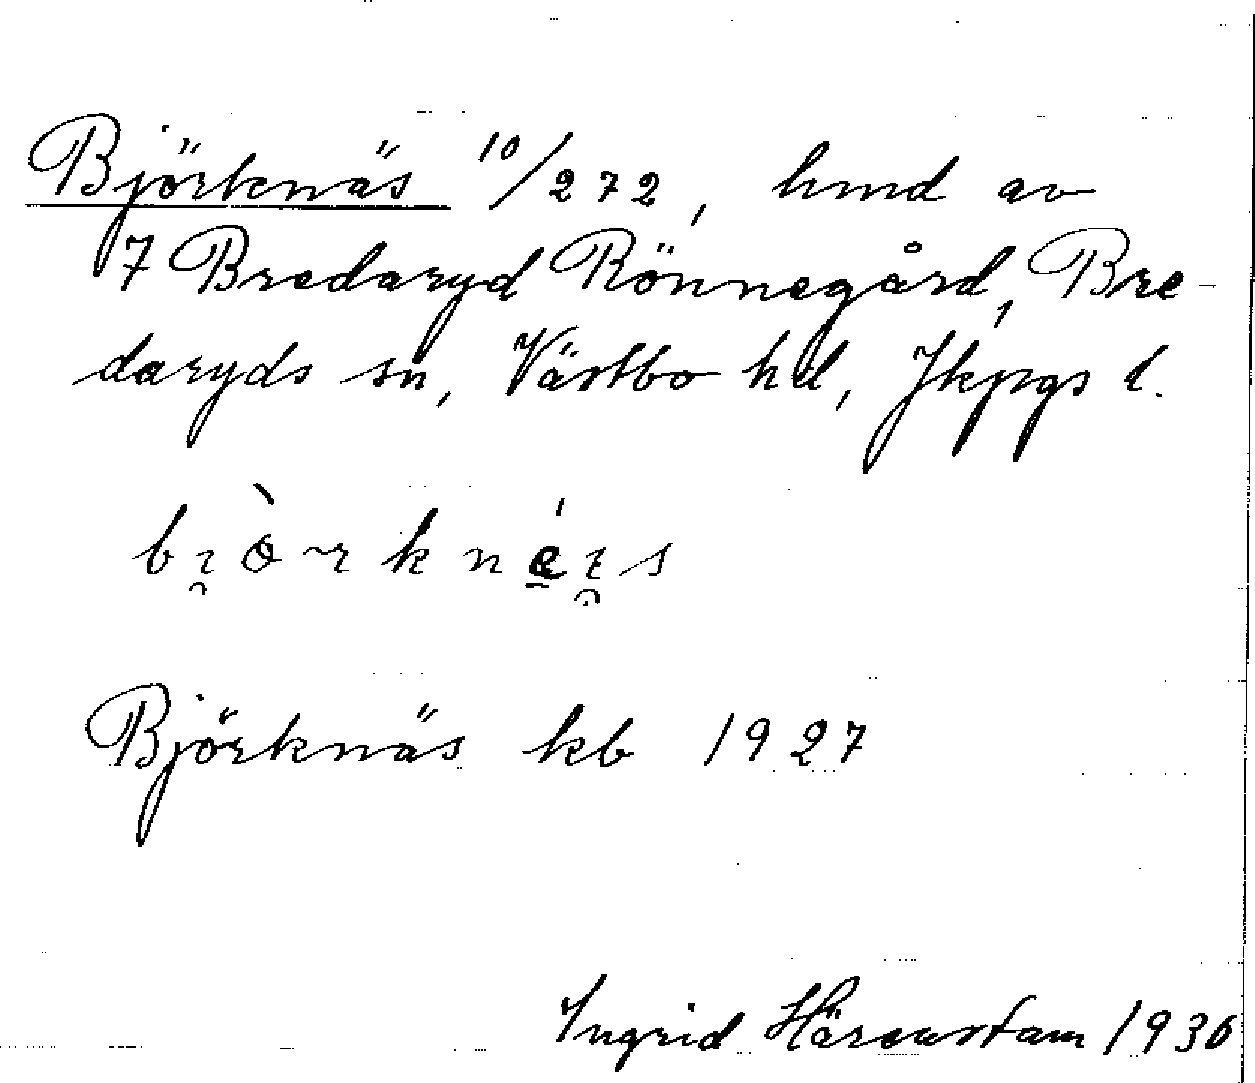 Björknäs 10/272, hmd av
7 Bredaryd Rönnegård, Bre-
daryds sn, Västbo hd, Jkpgs l.
Björknäs kb 1927
Ingrid Härenstam 1936